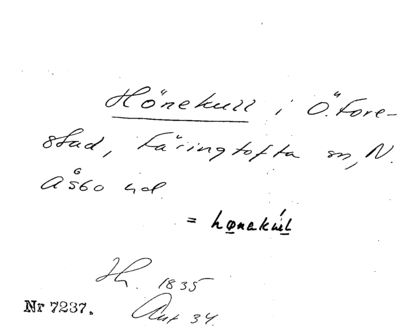 Hönekull i Ö. Fore-
stad, Färingtofta sn, N.
Åsbo hd.
= hønakul
1835
Nr 7237. Ant 34.